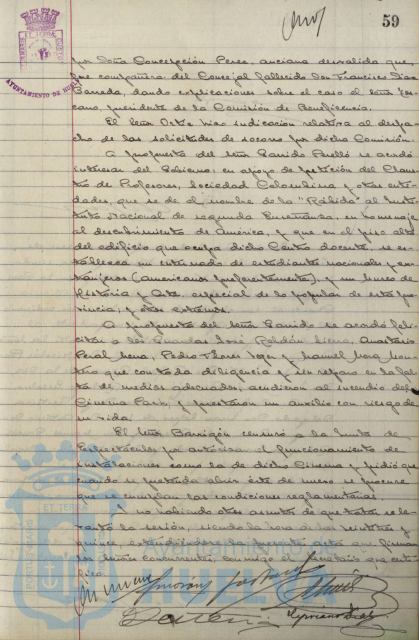 59
AYUNTAMIENTO DE HUELVA
por Doña Concepción Perea, anciana desvalida que
fue compañera del Concejal fallecido Don Francisco Diaz
Barreda, dando explicaciones sobre el caso el señor
cano, presidente de la Comisión de Beneficencia.
El Señor Ortiz hizo indicación relativa al despa-
cho de las solicitudes de socorro por dicha Comisión.
A propuesta del Señor Garrido Perelló se acordó
interesar del Gobierno, en apoyo de petición del Claus-
tro de Profesores, Sociedad Colombina y otras enti-
dades, que se dé el nombre de la "Rábida" al Insti-
tuto Nacional de segunda Enseñanza, en homenaje
al descubrimiento de América, y que en el piso alto
del edificio que ocupa dicho Centro docente, se es-
tablezca un internado de estudiantes nacionales y ex-
tranjeros (americanos preferentemente), y un museo de
Historia y Arte, especial de lo popular de esta pro-
vincia, y otros extremos.
A propuesta del señor Garrido se acordó feli-
citar a los Guardas José Roldán, Anastasio
Peral Mena, Pedro Flores y Manuel
que con toda diligencia y sin reparo en la fal-
ta de medios adecuados, acudieron al incendio del
Cinema Park, y prestaron un auxilio con riesgo de
su vida.
El Señor Barrigón censuró a la Junta de
Espectáculos por autorizar el funcionamiento de
instalaciones como la de dicho Cinema y pidió que
cuando se pretenda abrir éste de nuevo se procure
que se cumplan las condiciones reglamentarias.
Y no habiendo otros asuntos de que tratar se le-
vantó la sesión, siendo la hora de las veintitres y
quince, extendiéndose la presente acta que firma-
rán los señores concurrentes, conmigo el Secretario que certi-
fico.